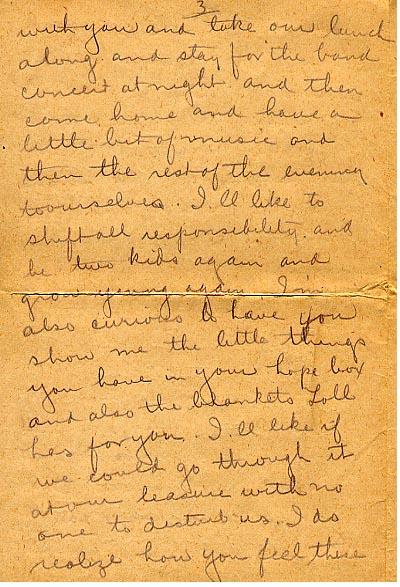 3
with you and take our lunch
along and stay for the band
concert at night and then
come home and have a
little bit of music and
then the rest of the evening
to ourselves. I'll like to
shift all responsibility and
be two kids again and
grow young again. I'm
also curious to have you
show me the little things
you have in your hope box
and also the blankets Loll
has for you. I'll like if
we could go through it
at our leasure with no
one to disturb us. I do
realize how you feel these